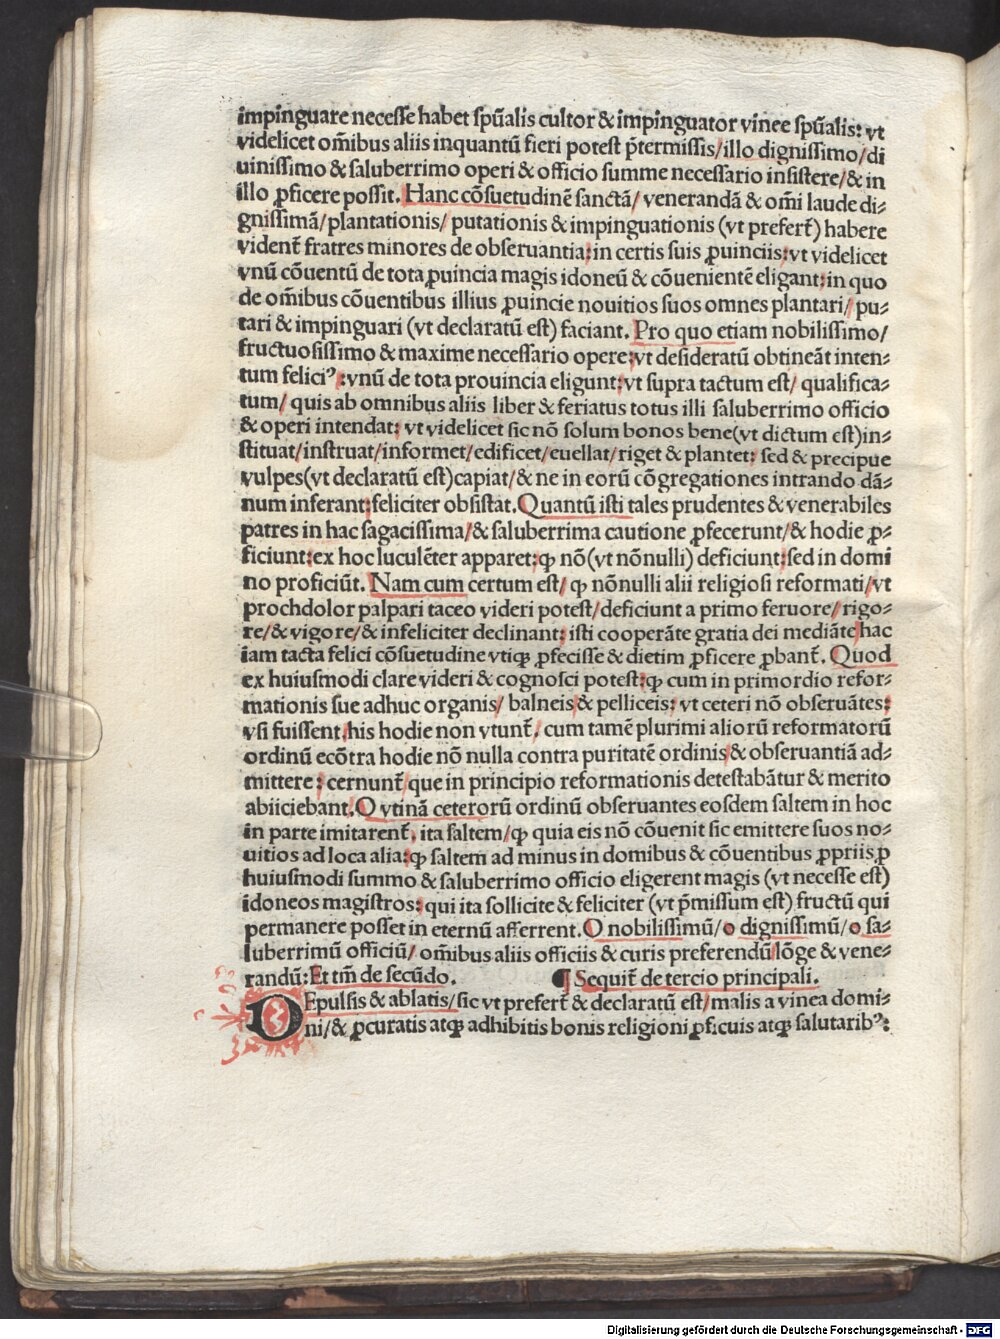 impinguare necesse habet spũalis cultor & impinguator vinee spũalis: vt
videlicet om̃ibus aliis inquantũ fieri potest p̃termissis/illo dignissimo/di
uinissimo & saluberrimo operi & officio summe necessario insistere/& in
illo ꝓficere possit. Hanc cõsuetudinẽ sanctã/ venerandã & om̃i laude di⸗
gnissimã/plantationis/ putationis & impinguationis (vt prefert̃) habere
vident̃ fratres minores de obseruantia: in certis suis ꝓuinciis: vt videlicet
vnũ cõuentũ de tota ꝓuincia magis idoneũ & cõuenientẽ eligant: in quo
de om̃ibus cõuentibus illius ꝓuincie nouitios suos omnes plantari/ pu⸗
tari & impinguari (vt declaratũ est) faciant. Pro quo etiam nobilissimo/
fructuosissimo & maxime necessario opere: vt desideratũ obtineãt inten⸗
tum feliciꝰ: vnũ de tota prouincia eligunt: vt supra tactum est/ qualifica⸗
tum/ quis ab omnibus aliis liber & feriatus totus illi saluberrimo officio
& operi intendat: vt videlicet sic nõ solum bonos bene(vt dictum est)in⸗
stituat/instruat/informet/edificet/euellat/riget & plantet: sed & precipue
vulpes(vt declaratũ est)capiat/& ne in eorũ cõgregationes intrando dã⸗
num inferant: feliciter obsistat. Quantũ isti tales prudentes & venerabiles
patres in hac sagacissima/& saluberrima cautione ꝓfecerunt/& hodie ꝓ⸗
ficiunt: ex hoc luculẽter apparet: ꝙ nõ(vt nõnulli) deficiunt: sed in domi
no proficiũt. Nam cum certum est/ ꝙ nõnulli alii religiosi reformati/vt
prochdolor palpari taceo videri potest/deficiunt a primo feruore/rigo⸗
re/& vigore/& infeliciter declinant: isti cooperãte gratia dei mediãte hac
iam tacta felici cõsuetudine vtiqꝫ ꝓfecisse & dietim ꝓficere ꝓbant̃. Quod
ex huiusmodi clare videri & cognosci potest: ꝙ cum in primordio refor⸗
mationis sue adhuc organis/ balneis & pelliceis: vt ceteri nõ obseruãtes:
vsi fuissent/his hodie non vtunt̃. cum tamẽ plurimi aliorũ reformatorũ
ordinũ ecõtra hodie nõ nulla contra puritatẽ ordinis & obseruantiã ad⸗
mittere: cernunt̃/que in principio reformationis detestabãtur & merito
abiiciebant. O vtinã ceterorũ ordinũ obseruantes eosdem saltem in hoc
in parte imitarent̃. ita saltem/ꝙ quia eis nõ cõuenit sic emittere suos no⸗
uitios ad loca alia: ꝙ saltem ad minus in domibus & cõuentibus ꝓpriis ꝓ
huiusmodi summo & saluberrimo officio eligerent magis (vt necesse est)
idoneos magistros: qui ita sollicite & feliciter (vt p̃missum est) fructũ qui
permanere posset in eternũ afferrent. O nobilissimũ/o dignissimũ/o sa⸗
luberrimũ officiũ/ om̃ibus aliis officiis & curis preferendũ/lõge & vene⸗
randũ: Et tm̃ de secũdo. ¶ Sequit̃ de tercio principali.
DEpulsis & ablatis/sic vt prefert̃ & declaratũ est/malis a vinea domi⸗
ni/& ꝓcuratis atqꝫ adhibitis bonis religioni ꝓficuis atqꝫ salutaribꝰ:
Digitalisierung gefördert durch die Deutsche Forschungsgemeinschaft - DFG